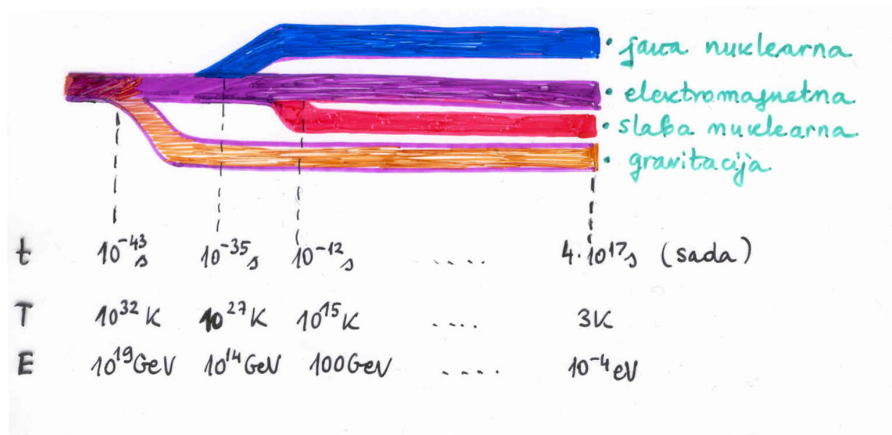 • jaka nuklearna
• elektromagnetna
• slaba nuklearna
• gravitacija
t 10⁻⁴³s 10⁻³⁵s 10⁻¹²s .... 4·10¹⁷s (sada)
T 10³² K 10²⁷ K 10¹⁵ K .... 3K
E 10¹⁹ GeV 10¹⁴ GeV 100 GeV .... 10⁻⁴ eV